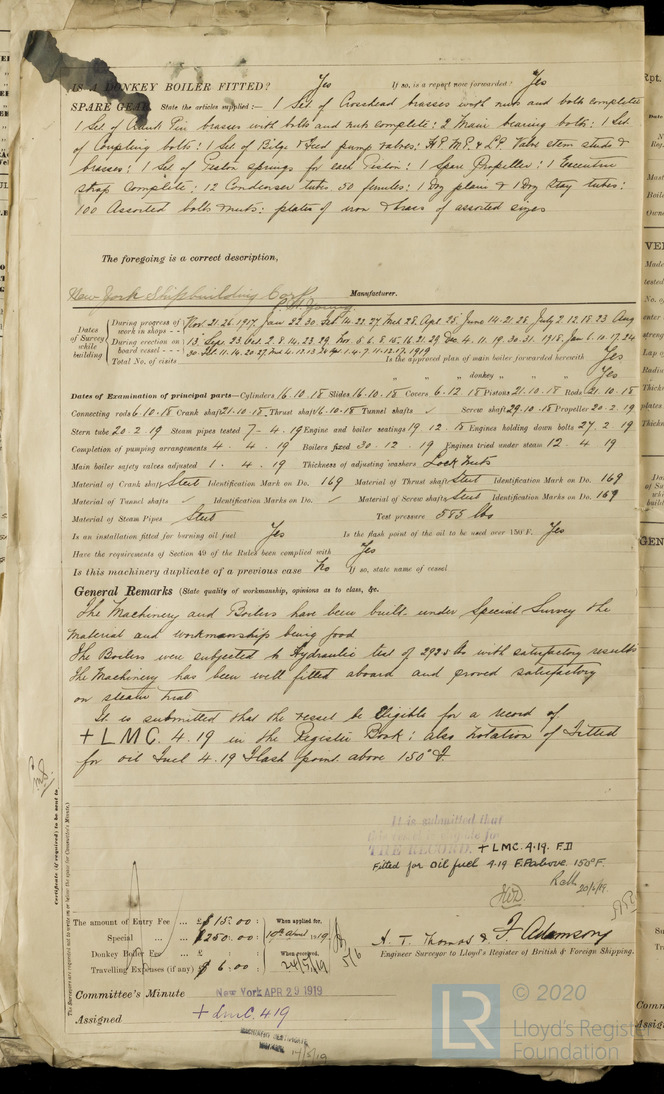 IS A DONKEY BOILER FITTED? Yes If so, is a report now forwarded? Yes
SPARE GEAR. State the articles supplied:— 1 Set of Crosshead brasses with nuts and bolts complete
1 Set of Crank Pin brasses with bolts and nuts complete: 2 Main bearing bolts: 1 Set
of Coupling bolts: 1 Set of Bilge & Feed pump valves: H.P. M.P. & L.P. Valve stem studs &
brasses: 1 Set of Piston springs for each Piston: 1 Spare Propeller: 1 Eccentric
strap Complete: 12 Condenser tubes 50 ferrules: 1 Doz plain & 1 Doz Stay tubes:
100 Assorted bolts & nuts: plates of iron & brass of assorted sizes
The foregoing is a correct description,
New York Shipbuilding Corp. Manufacturer.
Dates of Survey while building
During progress of work in shops - - Nov. 21. 26. 1917. Jan 22 30. Feb 14. 22. 27. Mch 28. Apl 25. June 14. 21. 28. July 2. 12. 18. 23 Aug
During erection on board vessel - - - 13. Sept 23 Oct. 2. 8. 14. 23. 29. Nov. 5. 6. 8. 15. 16. 21. 29. Dec. 4. 11. 19. 30. 31. 1918. Jan 6. 10. 17. 24
Total No. of visits 1919 Is the approved plan of main boiler forwarded herewith Yes
" " " donkey " " Yes
Dates of Examination of principal parts—Cylinders 16.10.18 Slides 16.10.18 Covers 6.12.18 Pistons 21.10.18 Rods 21.10.18
Connecting rods 6.10.18 Crank shaft 21.10.18 Thrust shaft 16.10.18 Tunnel shafts ✓ Screw shaft 29.10.18 Propeller 20.2.19
Stern tube 20.2.19 Steam pipes tested 7-4.19 Engine and boiler seatings 19.12.18 Engines holding down bolts 27.2.19
Completion of pumping arrangements 4.4.19 Boilers fixed 30.12.19 Engines tried under steam 12.4.19
Main boiler safety valves adjusted 1.4.19 Thickness of adjusting washers Lock Nuts
Material of Crank shaft Steel Identification Mark on Do. 169 Material of Thrust shaft Steel Identification Mark on Do. 169
Material of Tunnel shafts ✓ Identification Marks on Do. ✓ Material of Screw shafts Steel Identification Marks on Do. 169
Material of Steam Pipes Steel Test pressure 585 lbs
Is an installation fitted for burning oil fuel Yes Is the flash point of the oil to be used over 150°F. Yes
Have the requirements of Section 49 of the Rules been complied with Yes
Is this machinery duplicate of a previous case No If so, state name of vessel
General Remarks (State quality of workmanship, opinions as to class, &c.
The Machinery and Boilers have been built under Special Survey the
material and workmanship being good
The Boilers were subjected to Hydraulic test of 292.5 lbs with satisfactory results
The Machinery has been well fitted aboard and proved satisfactory
on steam trial
It is submitted that the vessel be Eligible for a record of
+ L M C. 4.19 in the Register Book: also notation of Fitted
for oil Fuel 4.19 Flash point above 150° F.
It is submitted that
THE RECORD. + LMC. 4.19. F.D
Fitted for Oil fuel 4.19 F.P. above 150°F.
The amount of Entry Fee ... £ $15.00 : When applied for,
Special ... ... £ $250.00 : 10th April 1919
Donkey Boiler Fee ... £ : : When received,
Travelling Expenses (if any) £ $6.00 : 24/5/19
A. T. Thomas & F. Adamson
Engineer Surveyor to Lloyd's Register of British & Foreign Shipping.
Committee's Minute New York APR 29 1919
Assigned + LMC. 4.19
© 2020
LR
Lloyd's Register
Foundation